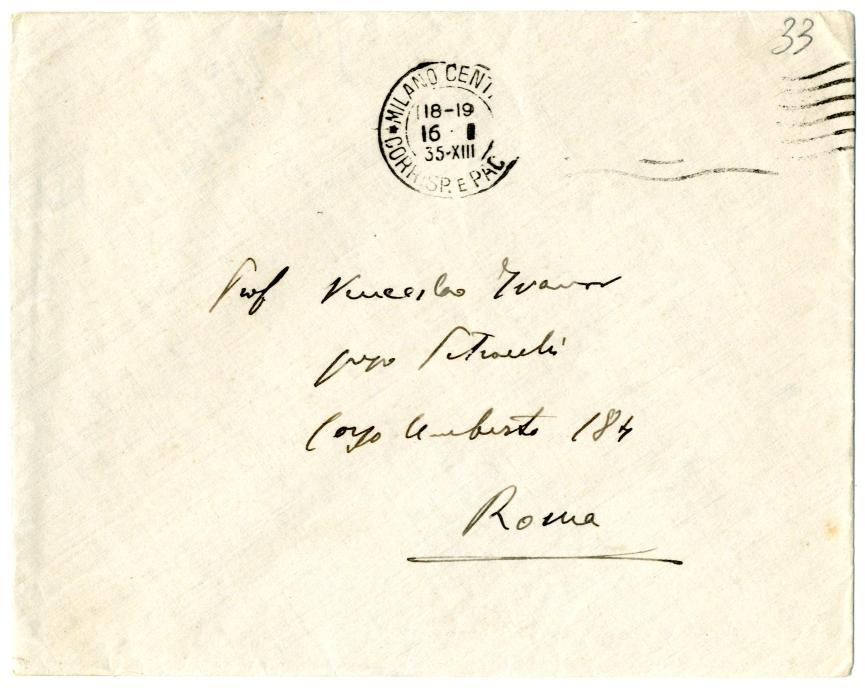 33
MILANO CENT.
18-19
16 · I
35-XIII
CORRISP. E PAC
Prof Venceslao Ivanov
presso Petrocchi
Corso Umberto 184
Roma